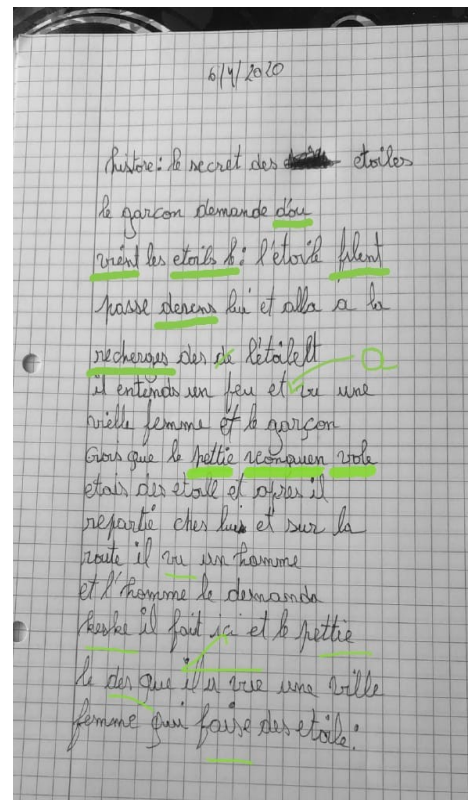 6/4/2020
histore: le secret des etoiles
le garçon demande d'ou
vient les etoils b: l'étoile filent
passe devens lui et alla à la
recherges des de l'étoilelt
a
il entends un feu et vu une
vielle femme et le garçon
Crois que le pettie reonquen vole
etais des etolle et apres il
repartié ches luis et sur la
route il vu un homme
et l'homme le demanda
keske il fait ici et le pettie
le des que il a vue une ville
femme qui faise des etoile: